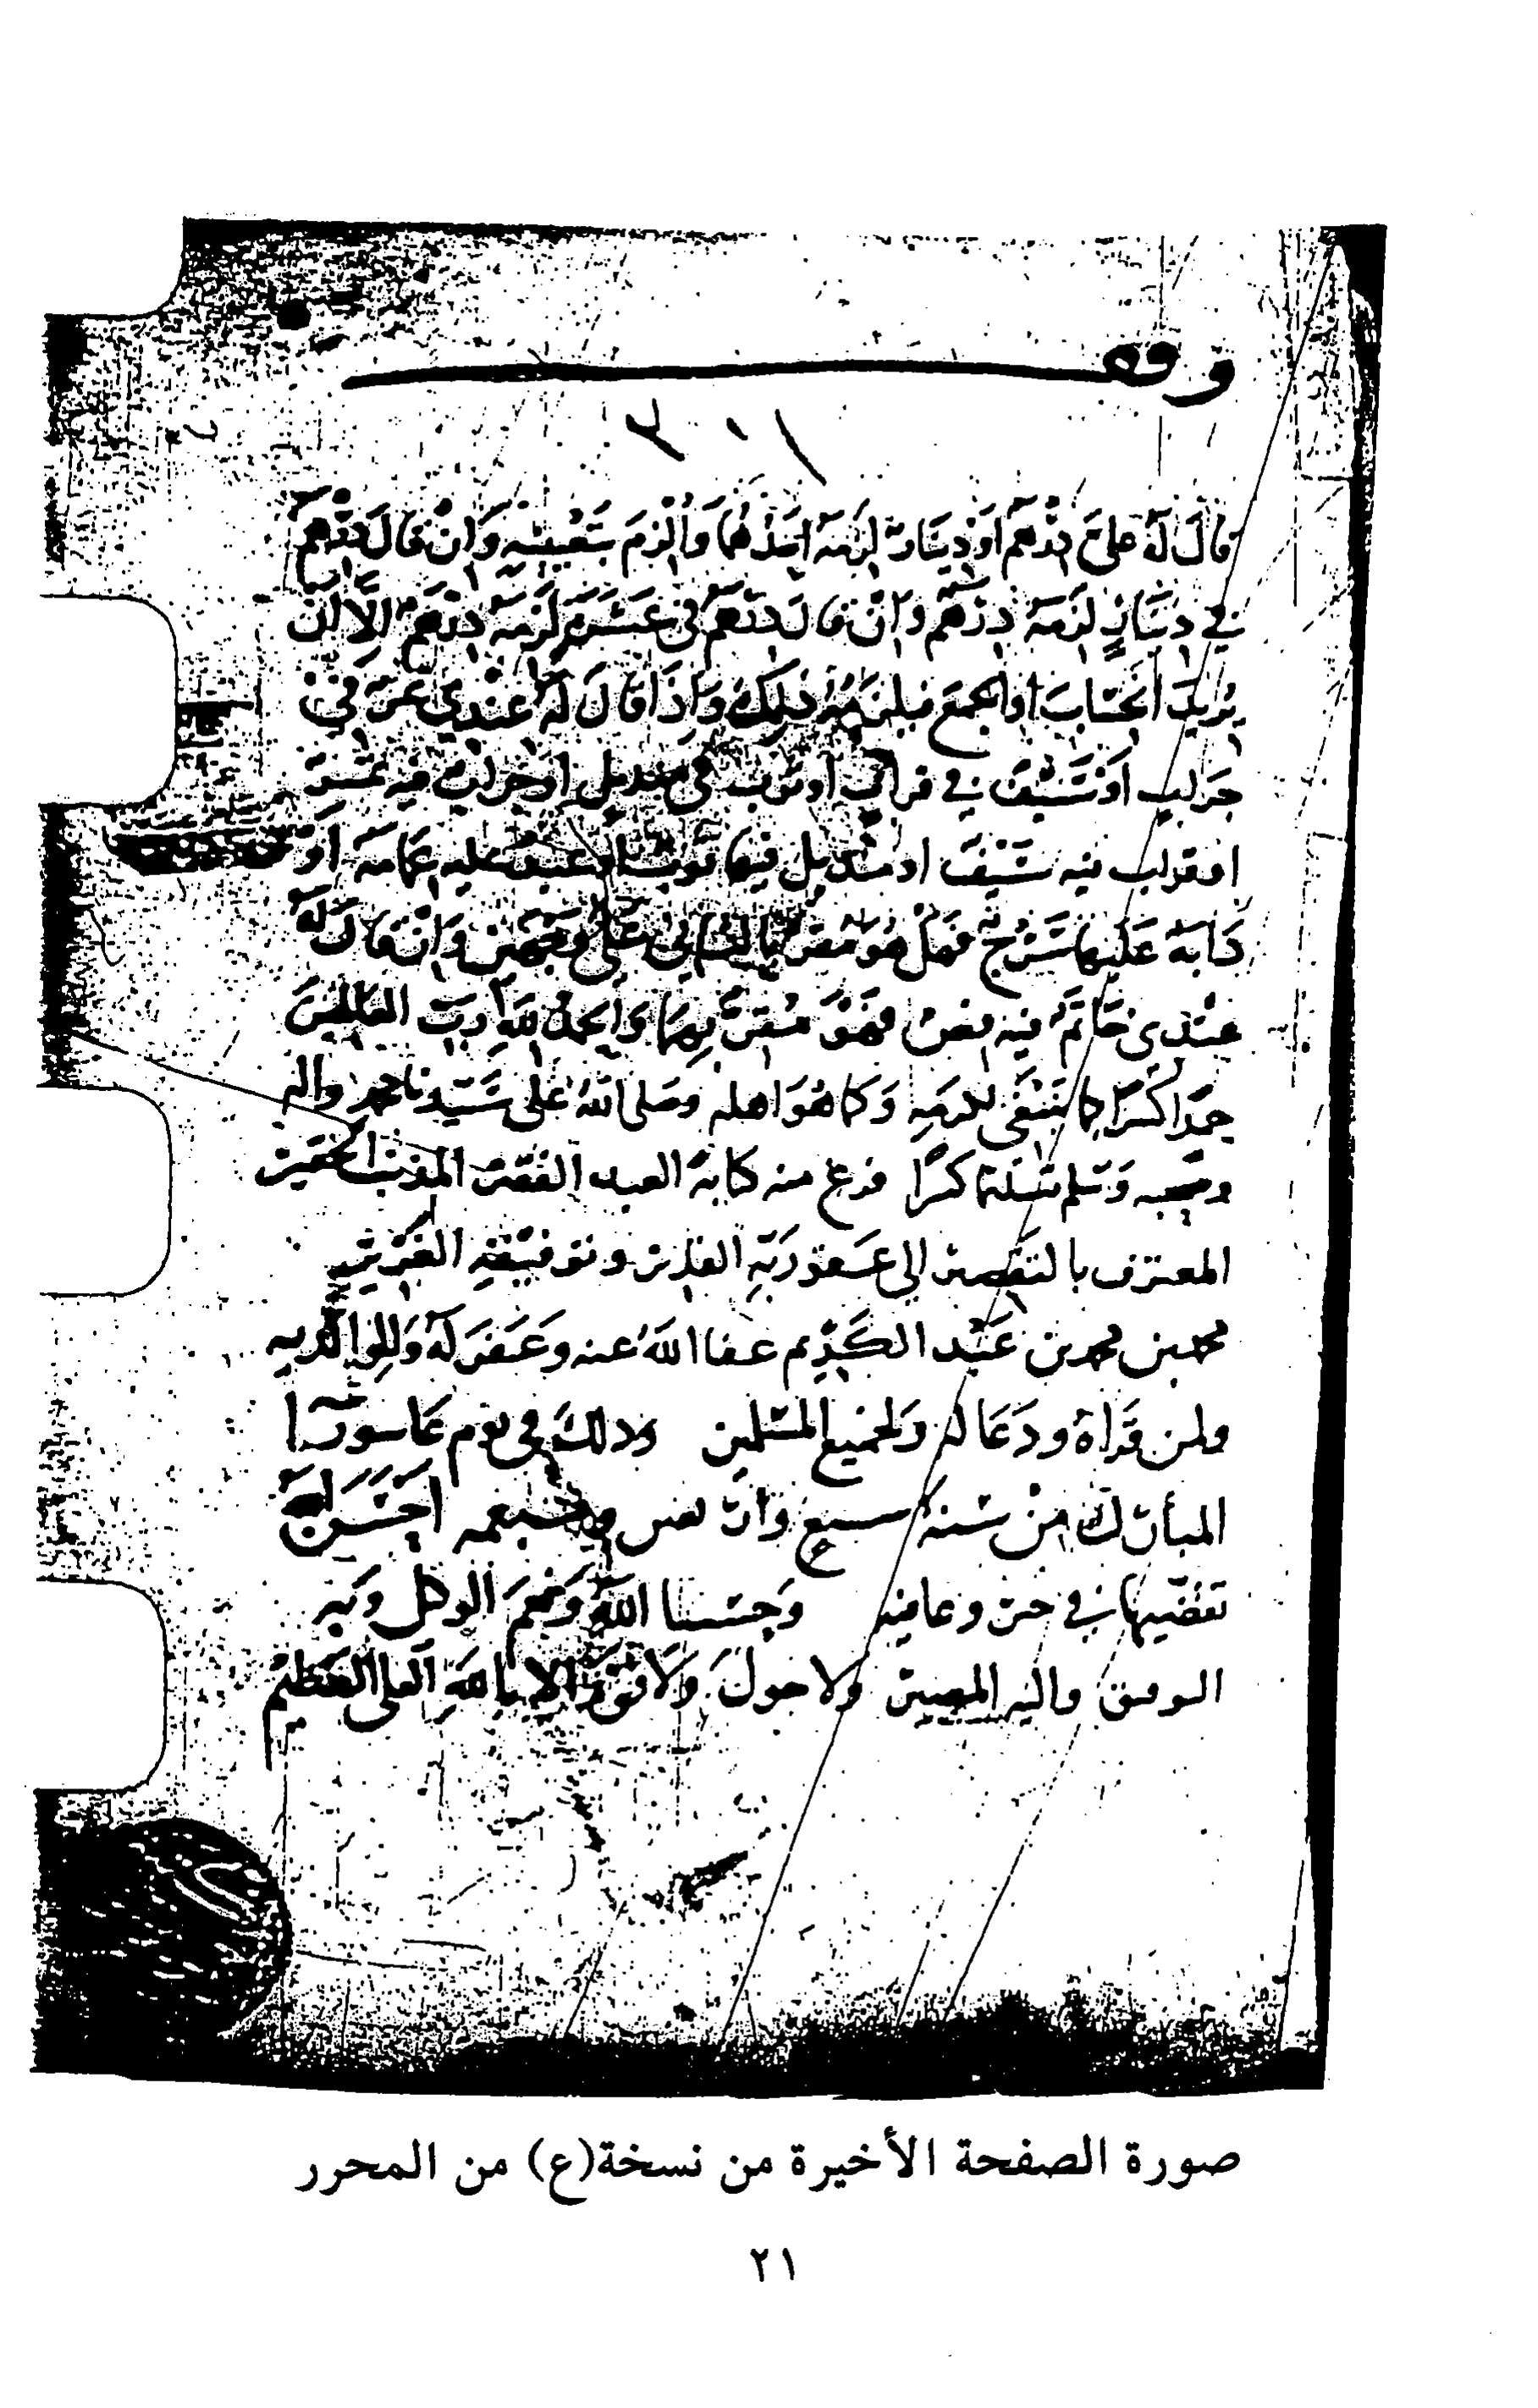 وقف
قال له علي درهم او دينار لزمه احدهما والزم بتعيينه وان قال درهم
في دينار لزمه درهم وان قال درهم في عشرة لزمه درهم الا ان
يريد الحساب او الجمع فيلزمه ذلك واذا قال له عندي تمر في
جراب او سيف في قراب او ثوب في منديل او جراب فيه تمر
او قراب فيه سيف او منديل فيها ثوب او عبد عليه عمامة او
دابة عليها سرج فهل هو مقر بالثاني على وجهين وان قال له
عندي خاتم فيه فص فهو مقر بهما والحمد لله رب العالمين
حمدا كثيرا كما ينبغي لكرمه وكما هو اهله وصلى الله على سيدنا محمد واله
وصحبه وسلم تسليما كثيرا فرغ من كتابة العبد الفقير المذنب الحقير
المعترف بالتقصير الى عفو ربه القدير وتوفيقه الغزير
محمد بن محمد بن عبد الكريم عفا الله عنه وغفر له ولوالديه
ولمن قراه ودعا له ولجميع المسلمين وذلك في يوم عاشورا
المبارك من سنة سبع وار بعين وسبعمه احسن الله
تقضيها في خير وعافيه وحسبنا الله ونعم الوكيل وبه
التوفيق واليه المصير ولا حول ولا قوة الا بالله العلي العظيم
صورة الصفحة الأخيرة من نسخة(ع) من المحرر
٢١